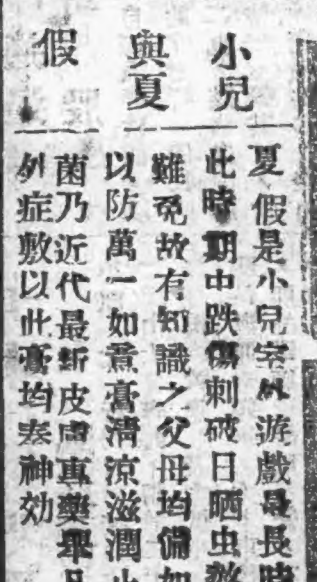 小兒
與夏
假
夏假是小兒室外遊戲最長時
此時期中跌傷刺破日晒虫
難免故有知識之父母均備如
以防萬一如意膏清涼滋潤止
菌乃近代最新皮膚專藥舉凡
外症敷以此膏均奏神効